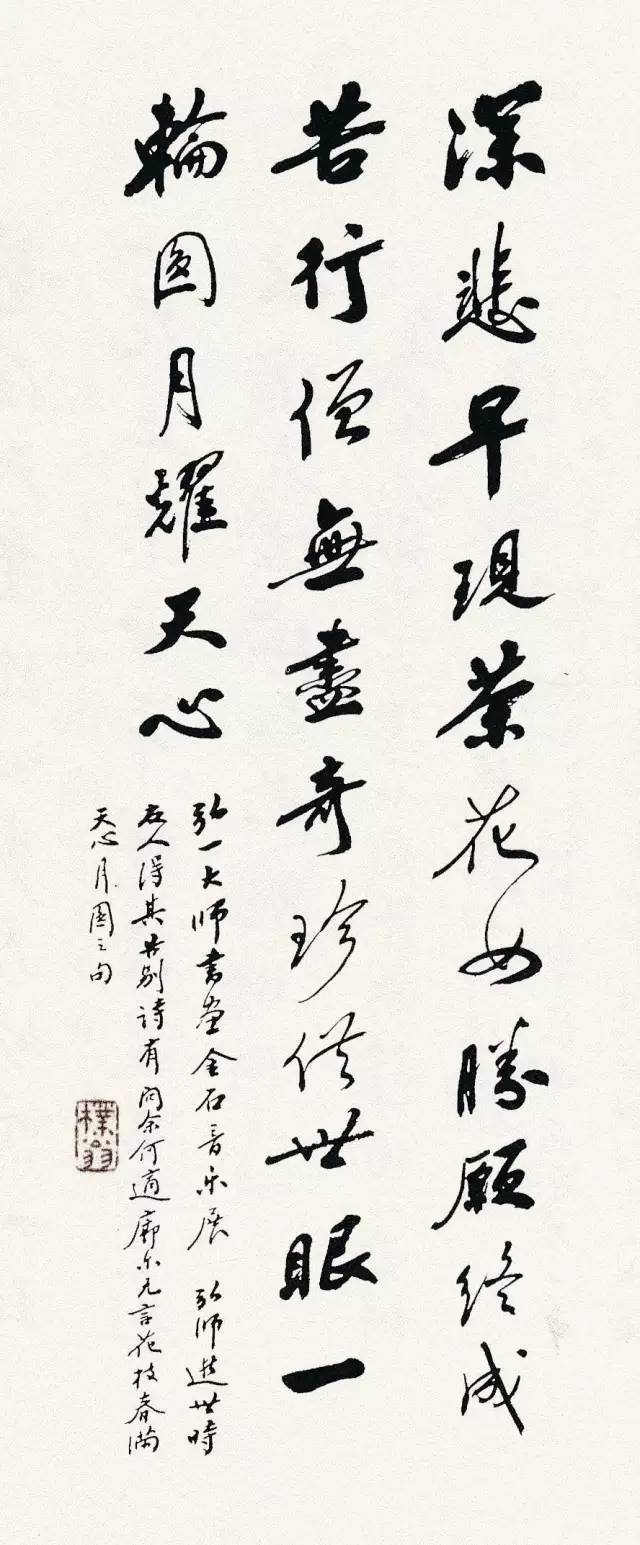 深悲早現茶花女勝願終成
苦行僧無盡奇珍供世眼一
輪圓月耀天心
弘一大師書畫金石音樂展 弘師逝世時
友人得其告別詩有問余何適廓尔亡言花枝春滿
天心月圓之句
樸翁